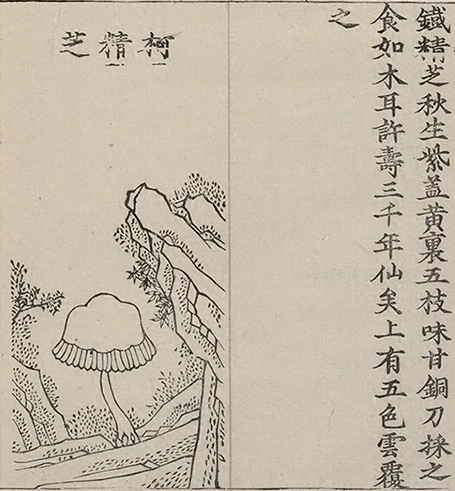 鐵精芝秋生紫盖黃裏五枝味甘銅刀採之
食如木耳許壽三千年仙矣上有五色雲覆
之
柯精芝